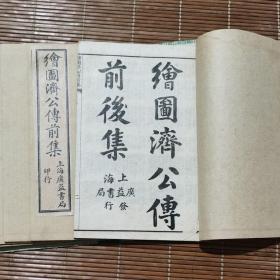 繪圖濟公傳
前後集
上海廣益書局發行
繪圖濟公傳前集
上海廣益書局印行